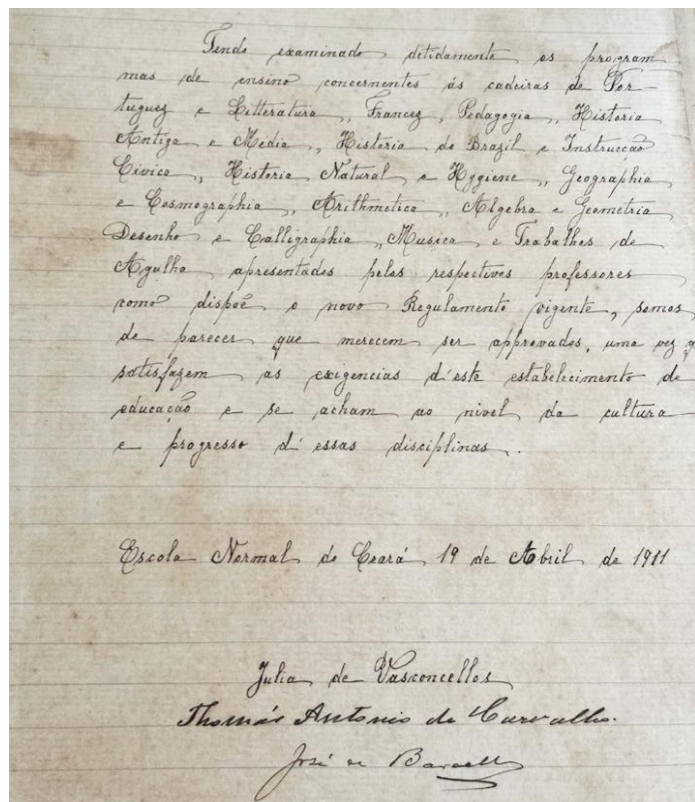 Tendo examinado detidamente os program
mas de ensino concernentes ás cadeiras de Por-
tuguez e Litteratura, Francez, Pedagogia, Historia
Antiga e Média, Historia do Brazil e Instrucção
Civica, Historia Natural e Hygiene, Geographia
e Cosmographia, Arithmetica, Algebra e Geometria
Desenho e Calligraphia, Musica, e Trabalhos de
Agulha apresentados pelos respectivos professores
como dispoẽ o novo Regulamento vigente, somos
de parecer que merecem ser approvados, uma vez q
satisfazem as exigencias d'este estabelecimento de
educação e se acham ao nivel da cultura
e progresso d'essas disciplinas.
Escola Normal do Ceará 19 de Abril de 1911
Julia de Vasconcellos
Thomás Antonio de Carvalho.
José de Barcell